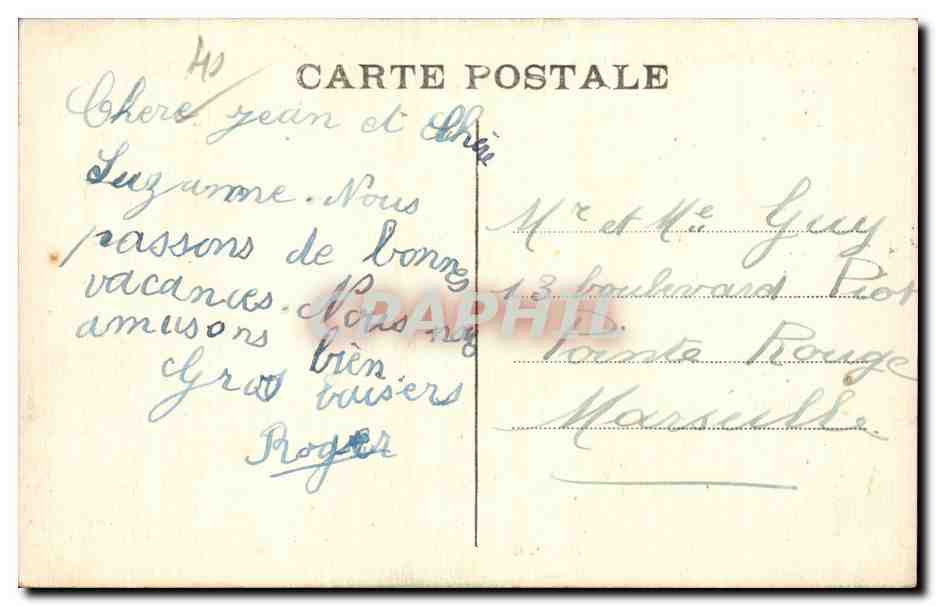 CARTE POSTALE
40
Chere Jean et Chère
Suzanne. Nous
passons de bonnes
vacances. Nous nous
amusons bien.
Gros baisers
Roger
Mr et Me Guy
13 boulevard Piot
Pointe Rouge
Marseille
CPAPHIL